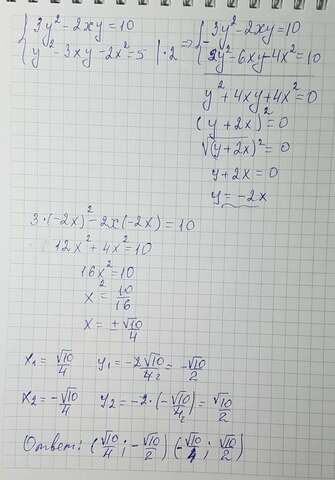 {3y² - 2xy = 10
{y² - 3xy - 2x² = 5 | · 2 ⇒
{3y² - 2xy = 10
{2y² - 6xy - 4x² = 10
y² + 4xy + 4x² = 0
(y + 2x)² = 0
√(y + 2x)² = 0
y + 2x = 0
y = -2x
3 · (-2x)² - 2x(-2x) = 10
12x² + 4x² = 10
16x² = 10
x² = 10/16
x = ± √10/4
x₁ = √10/4 y₁ = -2√10/4₂ = -√10/2
x₂ = -√10/4 y₂ = -2 · (-√10/4₂) = √10/2
Ответ: (√10/4 ; -√10/2) (-√10/4 ; √10/2)